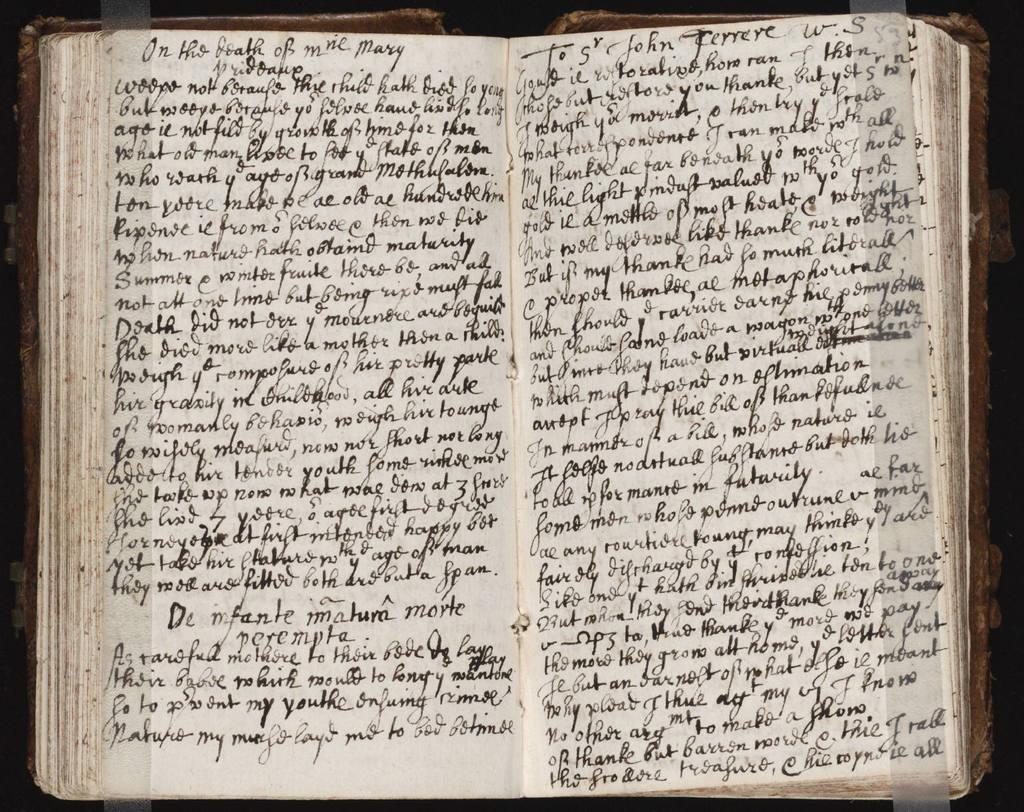 On the death of mris Mary
Prideaux
Weepe not because this child hath died so yong
but weepe because yor selves have livd so long
age is not fild by growth of time for then
what old man lives to see ye state of men
who reach ye age of grand Methusalem.
ten yeere make us as old as hundreds him
Ripenes is from or selves & then we die
when nature hath obtaind maturity
Summer & winter fruits there be, and all
not att one time but being ripe must fall
Death did not err ye mourners are beguild
she died more like a mother then a child.
Weigh ye composure of hir pretty parts
hir gravity in childhood, all hir arts
of womanly behavior, weigh hir tounge
so wisely measurd, now nor short nor long
adde to hir tender youth some riches more
she tooke up now what was dew at 3 score
she livd 7 yeers, or ages first degree
Jorneyes at first intended happy bee
yet take hir stature wth ye age of man
they well are fitted both are but a span.
De infante im̄aturâ morte
perempta
As carefull mothers to their beds do lay
their babes which would to long ye wantons play
so to prevent my youths ensuing crimes
Nature my nurse layd me to bed betimes
To Sr John Ferrers W. S
Gould is restorative, how can I then
chose but restore you thanks, but yet Sr wn
I weigh yor merrit, & then try ye scale
what correspondence I can make wth all
My thankes as far beneath yor words I hold
as this light pindust valued wth yor gold.
gold is a mettle of most heate, & weight
And well deserves like thanks nor cold nor light
But if my thanks had so much literall
& proper thankes, as metaphoricall.
then should ye carrier earne his penny better
and should soone loade a wagon wth one letter
but since they have but virtuall weight alone
which must depend on estimation
accept I pray this bill of thankefullnes
In manner of a bill, whose nature is
It selfe no actuall substance but doth tie
to all performance in futurity.
Some men whose penns outruns ye minds as far
as any courtiers toung, may thinke they are
fairely dischargd by yt confession;
Like one yt hath bin shrived is ten to one
But when they send their thanks they send away
to, true thanks ye more we pay
the more they grow att home, ye letter sent
Is but an earnest of what else is meant
Why plead I thus agt my I know
No other argmt to make a show
of thanks but barren words & this I call
the scollers treasure, & his coyne is all